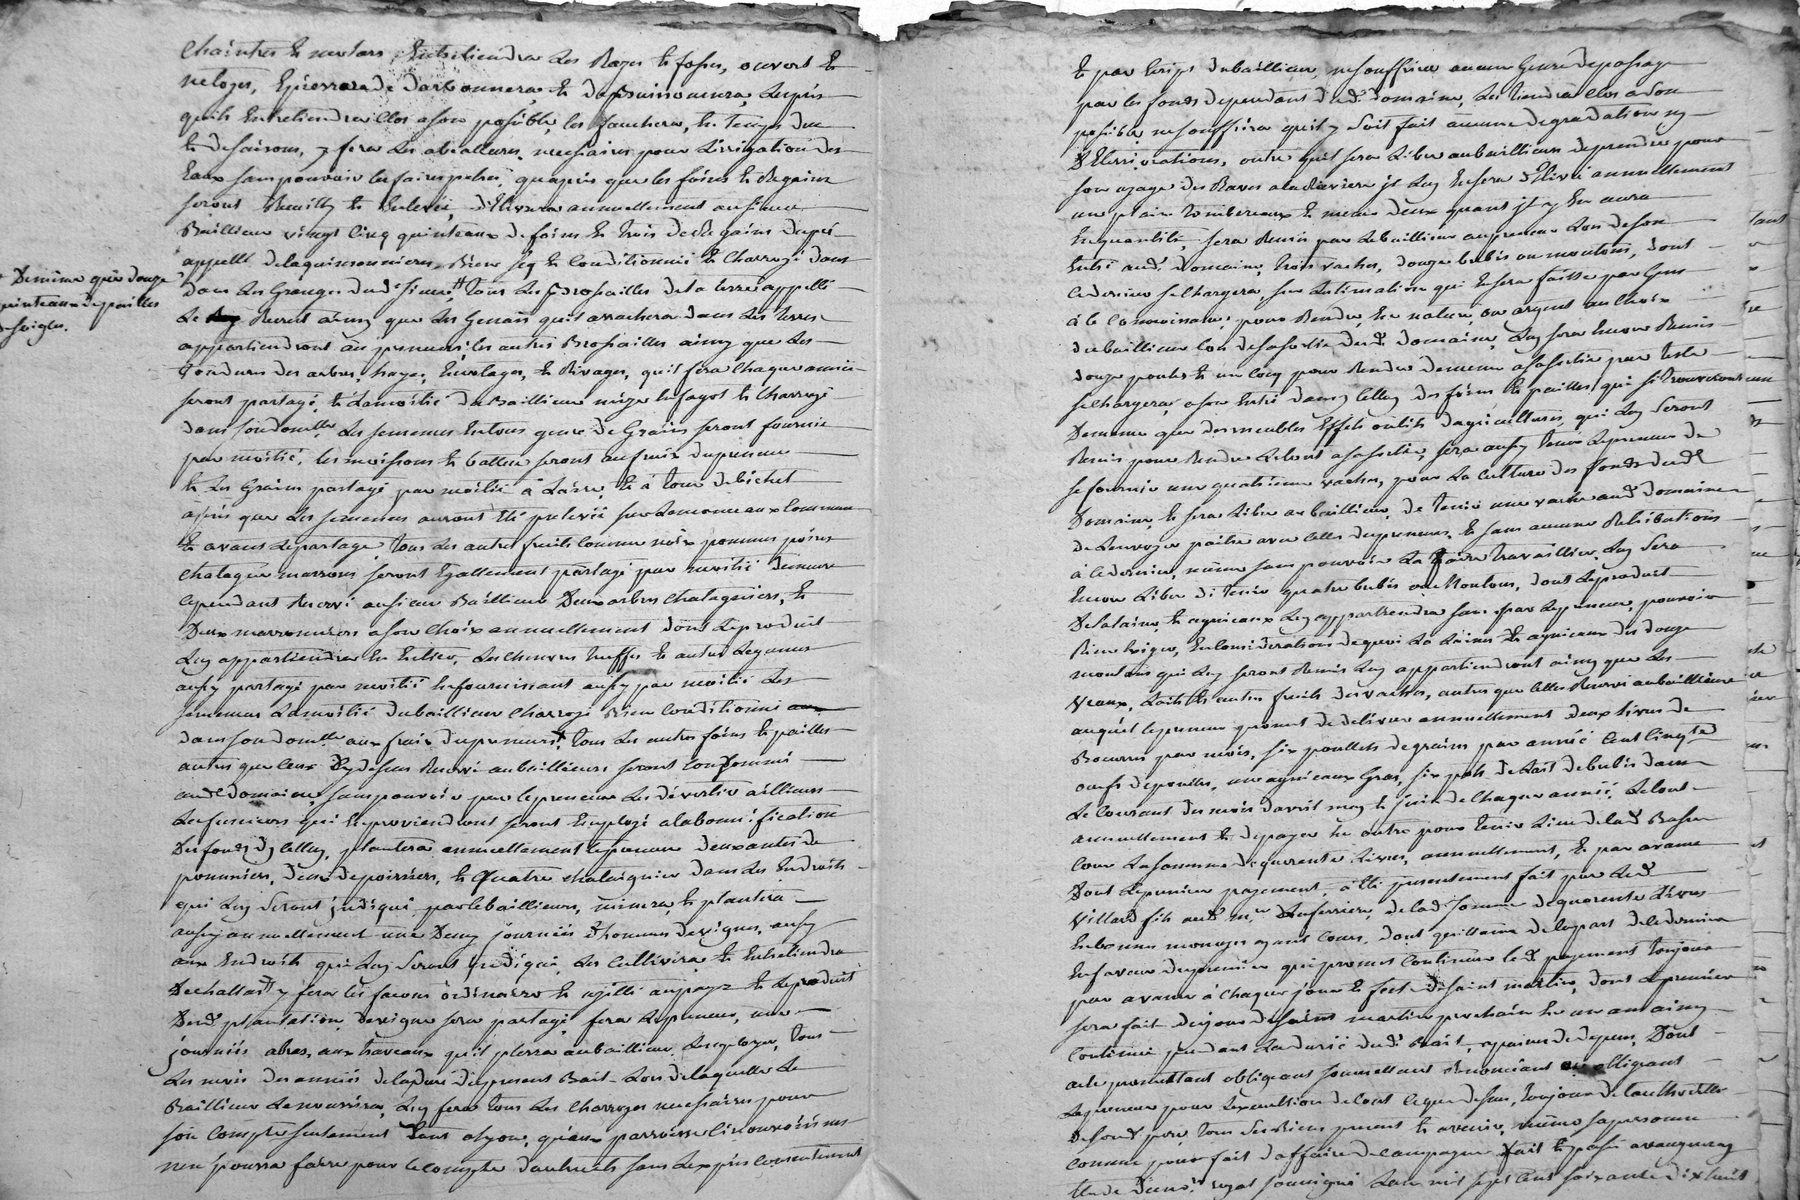 et fosses, ouvert et
qu'ils entretiendra clos a son possible, les fauchera, en temps du
et de saisons, y fera les abealleures necessaires pour l'irrigation des
eaux sans pouvoir les faire paitre, qu'apres que les foins et regains
seront et enlevé, delivrera annuellement au sieur
Bailleur vingt cinq quinteaux de foins et trois de regains du pré
appellé bien seq et conditionné et charroyé dans
+ De même que douze
quinteaux de pailles
seigle.
dans les granges dud. sieur, tous les brossailles de la terre appellé
le ainsy que les genais qu'il arrachera dans les terres
appartiendront au preneur, les autres brossailles ainsy que les
tondures des arbres, hayes, et rivages, qu'il fera chaque année
seront partagé, et la moitié du Bailleur en fagot et charroyé
dans son domlle les semences en tous genre de grains seront fournie
par moitié, les moissons et battre seront au frais du preneur
et les grains partagé par moitié à l'aire, et à tour de bichet
apres que les semences auront été prelevé sur le monceaux commun
et avant le partage, tous les autres fruits comme noix pommes poires
chataigne marrons seront egallement partagé par moitié demeure
cependant reservé au sieur Bailleur deux arbres chataigniers, et
deux marronniers a son choix annuellement dont le produit
luy appartiendra en entier, les chenevres truffes et autres legumes
aussy partagé par moitié en fournissant aussy par moitié les
semences la moitié du bailleur charroyé bien conditionné
dans son domlle aux frais du preneur, tous les autres foins et pailles
autres que ceux cy dessus reservé au bailleur seront consommé
aud. domaine, sans pouvoir par le preneur les divertir ailleurs
les fumiers qui en proviendront seront employé a la bonification
des fonds d'icelluy, plantera annuellement le preneur deux antes de
pommiers, deux de poiriers, et quatre chataignier dans les endroits
qui luy seront indiqué par le bailleur, minera et plantera
aussy annuellement une demy journée d'homme de vignes, aussy
aux endroits qui luy seront indiqué, les cultivera et entretiendra
d'echallas, y fera les facons ordinaire et usitté au pays et le produit
dud. plantation de vigne sera partagé, fera le preneur, une
journée a bras, aux travaux qu'il plerra au bailleur l'employer, tous
les mois des années de la durée du present Bail lors de laquelle le
Bailleur le nourrira, luy fera tous les charroyes necessaires pour
son compte seulement tant a lyon, qu'aux parroisse circonvoisines
n'en pourra faire pour le compte d'autruits sans l'exprès consentement
et par ecrips du bailleur, ne souffrira aucun genre de passage
par les fonds dependant dud. domaine, les tiendra clos a son
possible ne souffrira qu'il y soit fait aucune degradation ny
deteriorations, outre qu'il sera libre au bailleur de prendre pour
son usage des raves a la riviere il luy en sera delivré annuellement
un plein tombereaux et meme deux quant il y en aura
en quantité, sera remis par le bailleur au preneur lors de son
entré aud. domaine, trois vaches, douze brebis ou moutons, dont
ce dernier se chargera sur l'estimation qui en sera faitte par gens
à ce connoissant, pour rendre, en nature, ou argent au choix
du bailleur lors de sa sortie dud. domaine, luy sera encore remis
douze poules et un coq pour rendre de meme a sa sortie par
se chargera, a son entré dans icelluy des foins et pailles qui s'y trouveront
de meme que des meubles effets outils d'agriculture, qui luy seront
remis pour rendre le tout a sa sortie, sera aussy tenu le preneur de
se fournir une quatrieme vache, pour la culture des fonds dud.
domaine, et sera libre au bailleur, de tenir une vache aud. domaine
de l'envoyer paitre avec celles du preneur, et sans aucune retributions
à ce dernier, même sans pouvoir la faire travailler, luy sera
encore libre de tenir quatre brebis ou moutons, dont le produit
de la laine, et agneaux luy appartiendra sans par le preneur, pouvoir
rien exiger, en consideration de quoi la laine et agneaux des douze
moutons qui luy seront remis luy appartiendront ainsy que les
veaux, laits et autres fruits des vaches, autres que celles reservé au bailleur
auquel le preneur promet de delivrer annuellement deux livres de
Beurres par mois, six poullets de grains par année cent cinqte
oeufs de poulles, une agneaux gras, six pots de lait de brebis dans
le courant des mois d'avril may et juin de chaque année, le tout
annuellement et de payer en outre pour tenir lieu de lad. basse
cour la somme de quarente livres, annuellement, et par avance
dont le premier payement, a été presentement fait par led.
Villard fils aud. mre Laferriere, de lad. somme de quarente livres
en bonnes monoyes ayant cours, dont quittance de la part de ce dernier
en faveur du premier qui promet continuer led. payement toujours
par avance à chaque jour et feste de saint martin, dont le premier
sera fait du jour de saint martin prochain en un an ainsy
continué pendant la durée dud. Bail, a peines de depens, dont
acte promettant obligeant soumettant renoncant et obligeant
le preneur pour l'execution de tout ce que dessus, toujours de l'authorité
de son d. pere, tous ses biens present et avenir, même sa personne
comme pour fait d'affaire de campagne fait et passé
royal soussigné l'an mil sept cent soixante dix huit